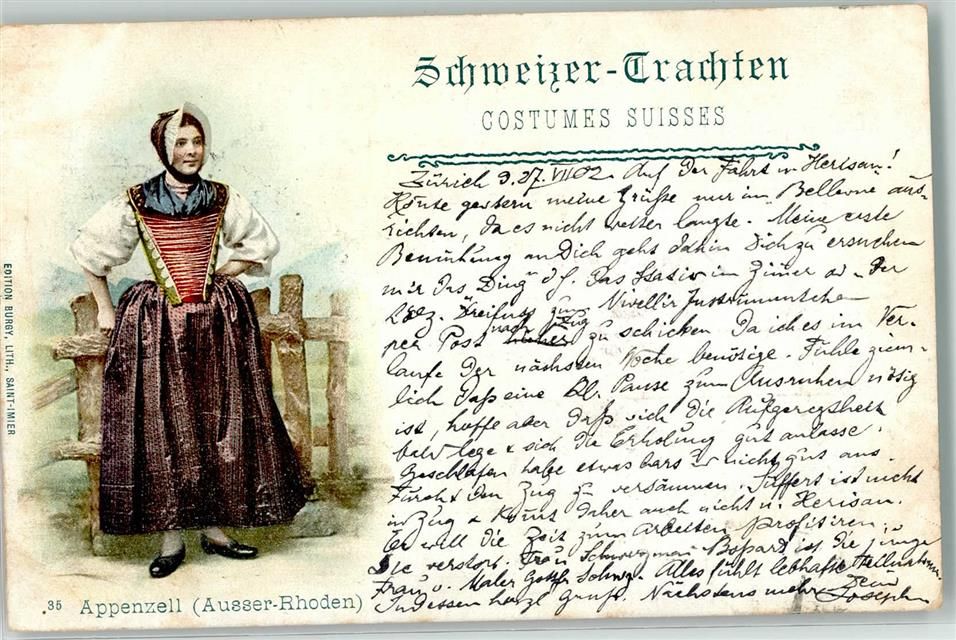 Schweizer-Trachten
COSTUMES SUISSES
Zürich 9. 27. VII 02. Auf der Fahrt n. Herisau!
Konnte gestern meine Grüße nur im Bellevue aus-
richten, da es nicht weiter langte. Meine erste
Bemühung an Dich geht dahin Dich zu ersuchen
mir das Ding d. h. das Stativ im Zimer od. der
Dreifuss zum Nivellir Instrumentchen
per Post nach Zug zu schicken. Da ich es im Ver-
laufe der nächsten Woche benötige. Fühle ziem-
lich daß eine Pause zum Ausruhen nötig
ist, hoffe aber daß sich die Aufgeregtheit
bald lege & sich die Erholung gut anlasse.
Geschlafen habe etwas nicht gut aus
Furcht den Zug zu versäumen. ist nicht
in Zug & kommt daher auch nicht n. Herisau.
Er will die Zeit zum Arbeiten profitiren.
Die verstorb. Frau Bopart ist die junge
Frau v. Maler Alles fühlt lebhafte
Indessen herzl. Gruß. Nächstens mehr Dein
Joseph
35 Appenzell (Ausser-Rhoden)
EDITION BURGY, LITH., SAINT-IMIER